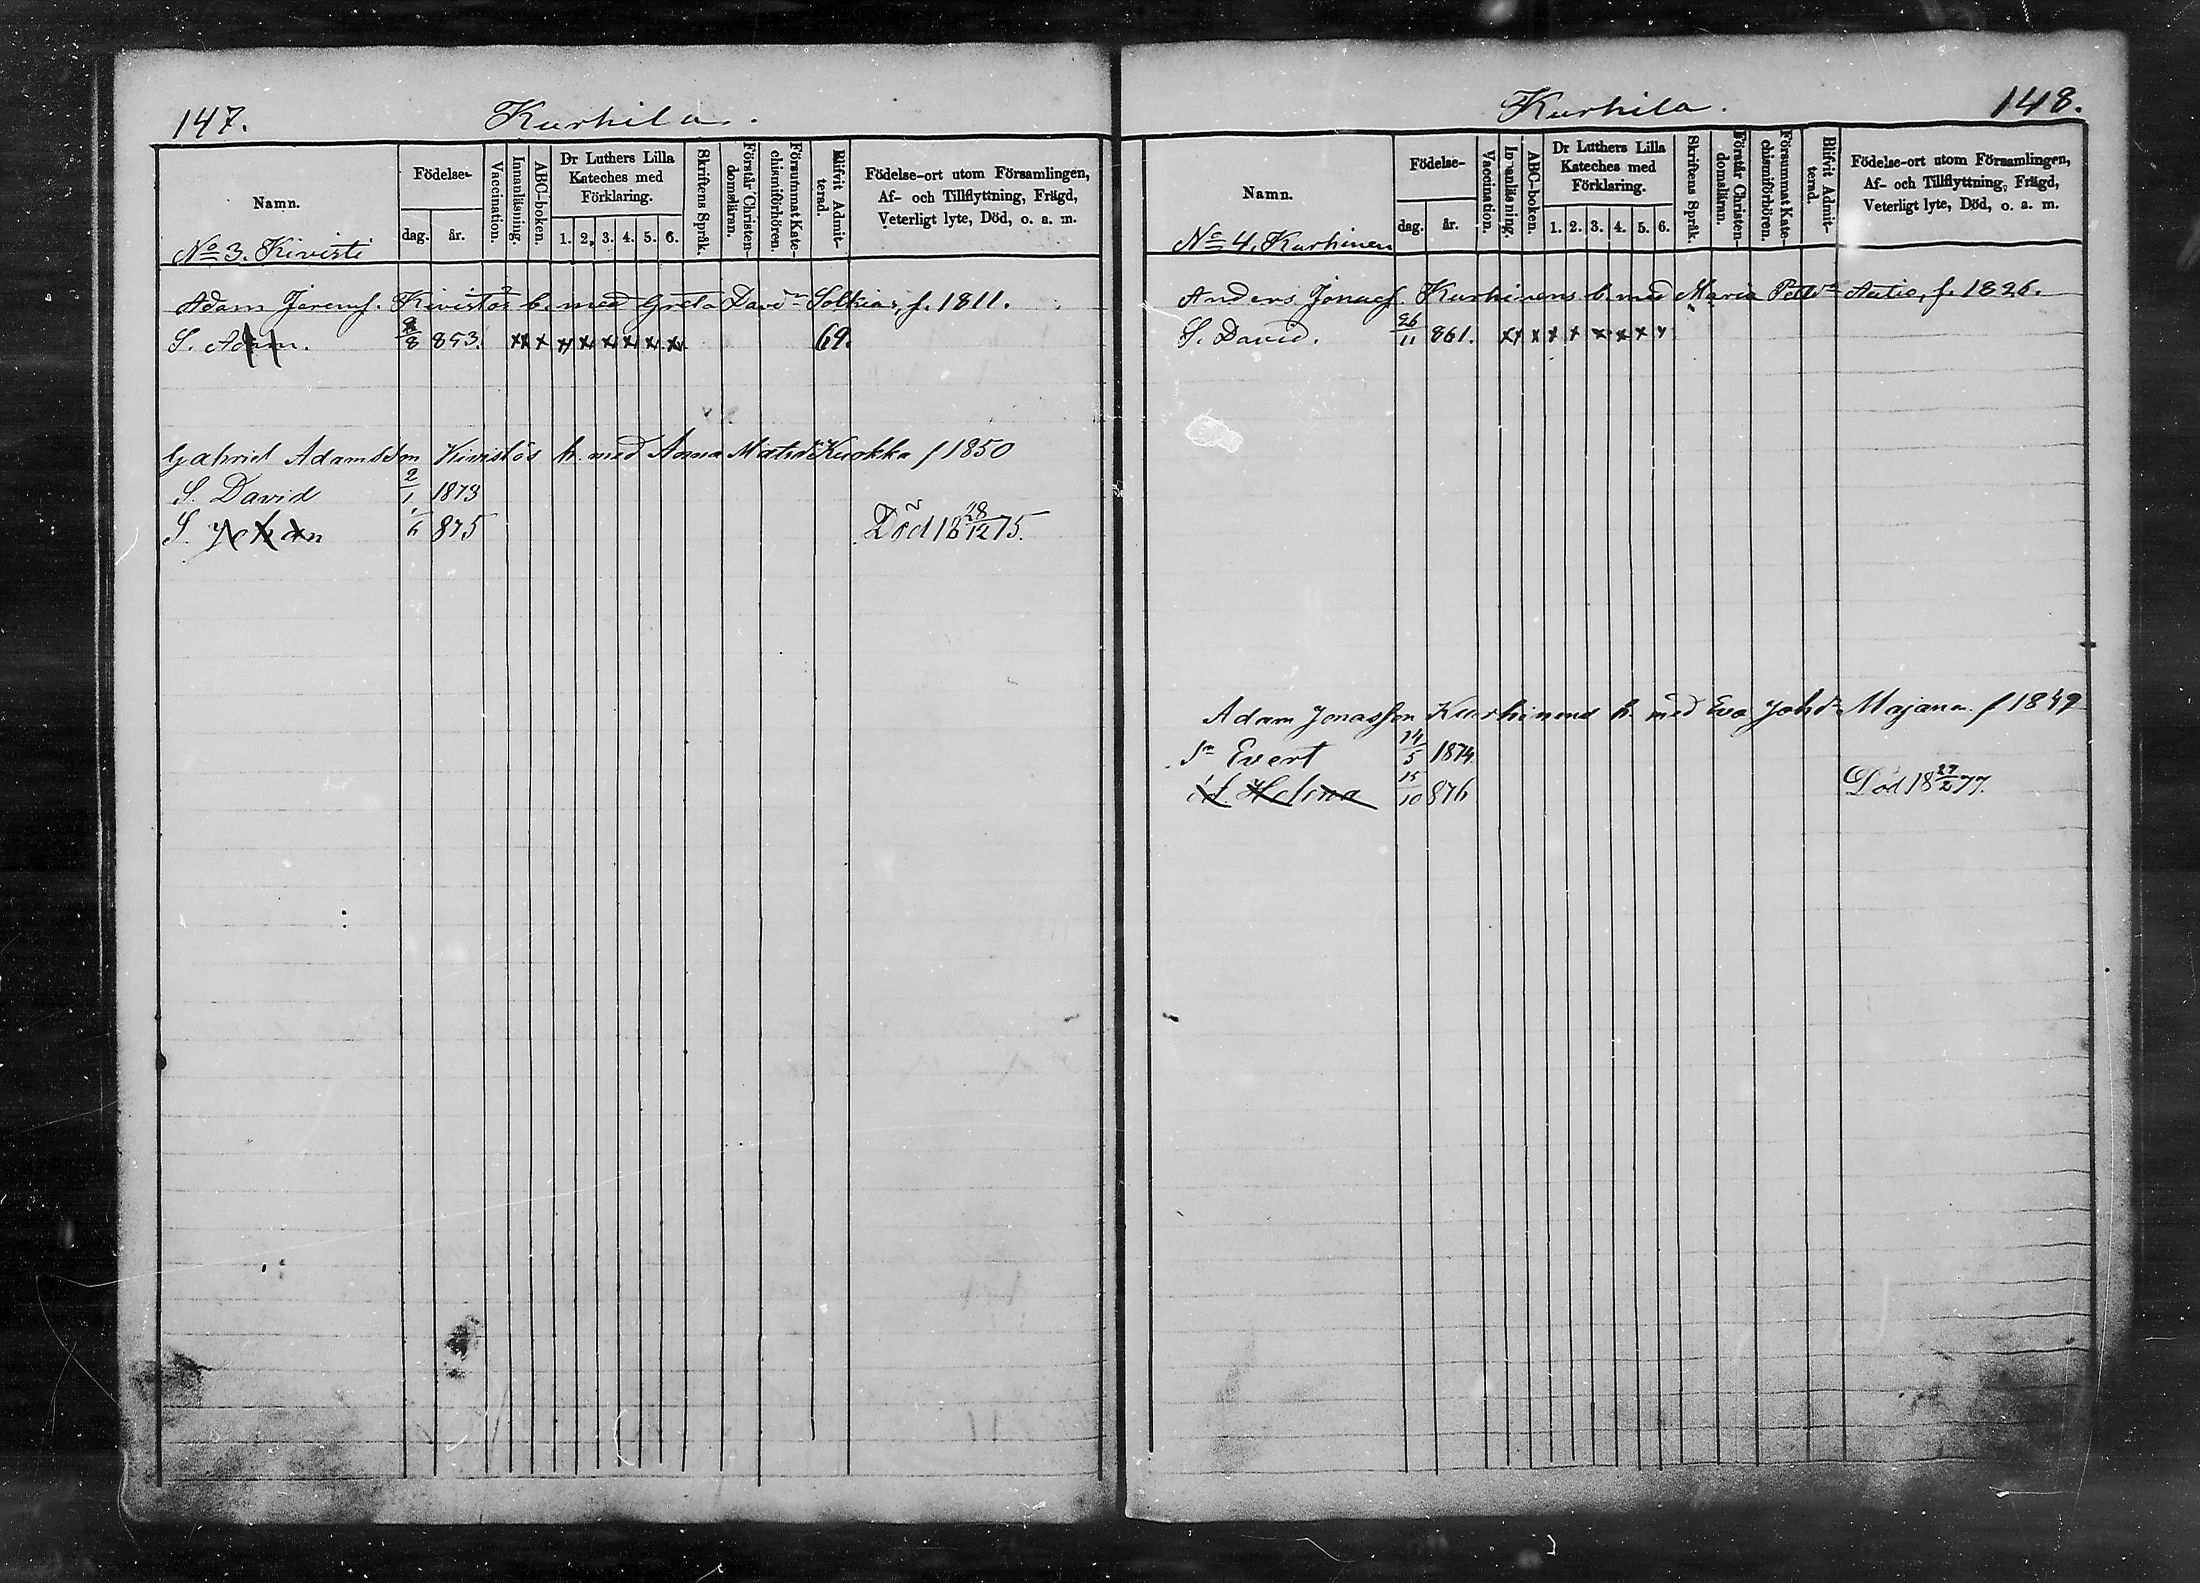 147.
Kurhila.
Namn.
Födelse-
dag.
år.
Vaccination.
Innanläsning.
ABC-boken.
Dr Luthers Lilla
Kateches med
Förklaring.
1. 2. 3. 4. 5. 6.
Skriftens Språk.
Förstår Christen-
domsläran.
Försummat Kate-
chismiförhören.
Blifvit Admit-
terad.
Födelse-ort utom Församlingen,
Af- och Tillflyttning, Frägd,
Veterligt lyte, Död, o. a. m.
No 3. Kivisti
Adam Jeremj. Kivistös b. med Greta Davdr f. 1811.
S. Adam. 8 853. xx x x x x x x x 69.
Gabriel Adamsson Kivistös h. med Anna Kuokka f 1850
S. David 2/1 1873
S. Johan 1/6 875 Död 18 28/12 75.
148.
Kurhila.
Namn.
Födelse-
dag.
år.
Vaccination.
Innanläsning.
ABC-boken.
Dr Luthers Lilla
Kateches med
Förklaring.
1. 2. 3. 4. 5. 6.
Skriftens Språk.
Förstår Christen-
domsläran.
Försummat Kate-
chismiförhören.
Blifvit Admit-
terad.
Födelse-ort utom Församlingen,
Af- och Tillflyttning, Frägd,
Veterligt lyte, Död, o. a. m.
No 4. Kurhinen
Anders Jonasj. Kurhinens b. med Maria Pettdr Autio, f. 1826.
S. David. 26/11 861. xx x x x x x x x
Adam Jonasson Kurhinens h. med Eva Johdr Majan f 1849
Sn Evert 14/5 1874.
d. Helena 15/10 876 Död 18 27/2 77.